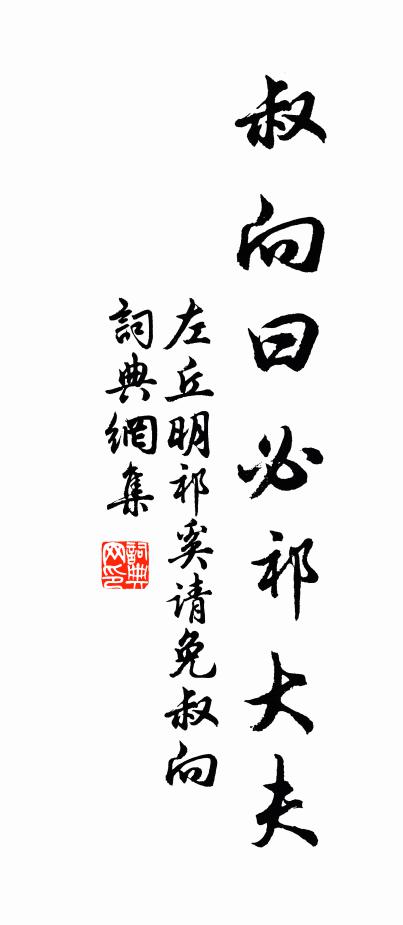 叔向曰必祁大夫
左丘明祁奚请免叔向
詞典網集
詞典网印